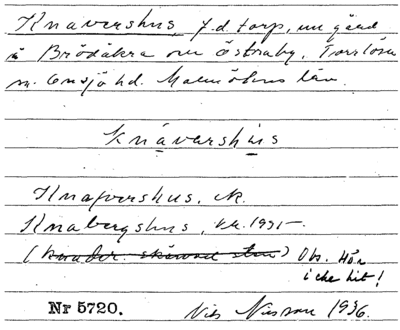 Knävershus, f.d. torp, nu gård
å Brödåkra nr Östraby, Torrlösa
sn. Onsjö hd. Malmöhus län.
Knävershus
Knafvershus, ek.
Knabergshus, kr. 1915
(Knader skånsk sten) Obs. Hör
icke hit!
Nr 5720. Nils Nilsson 1936.